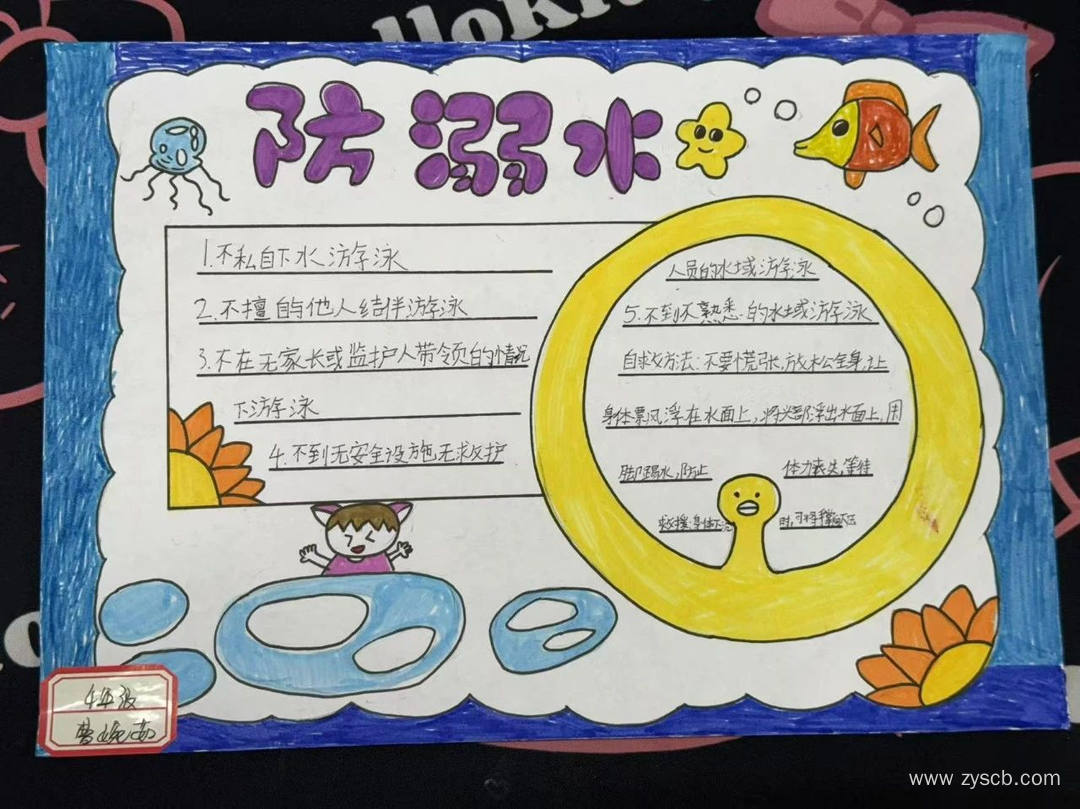 防溺水
1.不私自下水游泳
2.不擅自与他人结伴游泳
3.不在无家长或监护人带领的情况
下游泳
4.不到无安全设施无求救护
人员的水域游泳
5.不到不熟悉的水域游泳
自救方法:不要慌张,放松全身,让
身体飘浮在水面上,将头部浮出水面上,用
脚踢水,防止 体力丧失,等待
救援,身体下沉
4年级
www.zyscb.com